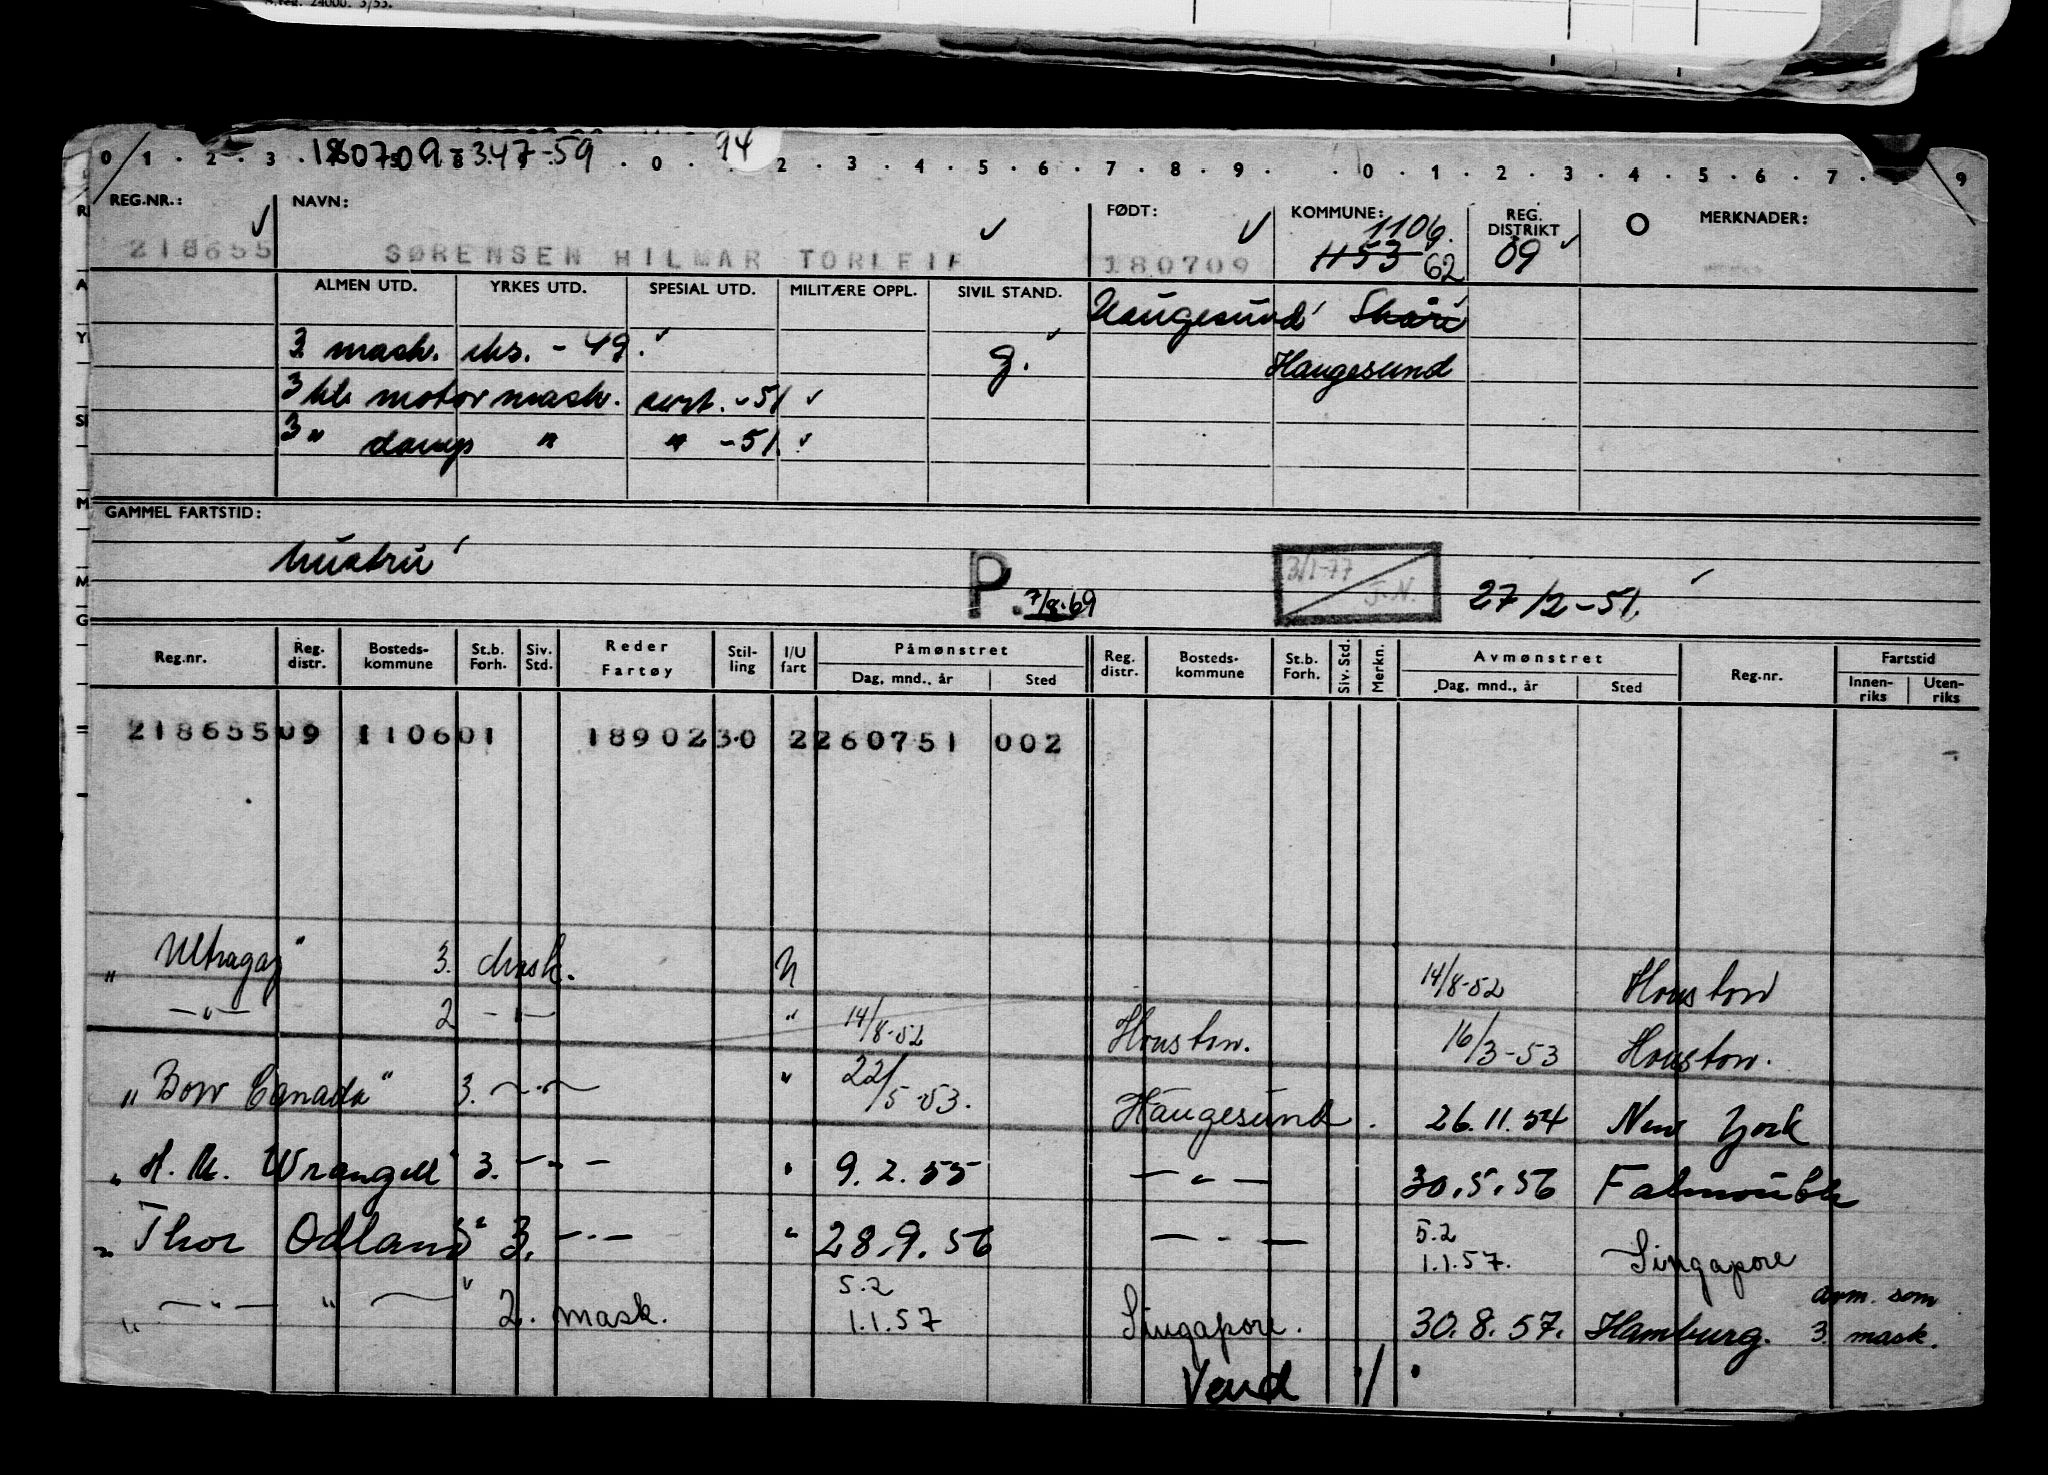 180709-347-59 94
0 1 . 2 . 3 . 0 . 2 . 3 . 4 . 5 . 6 . 7 . 8 . 9 . 0 . 1 . 2 . 3 . 4 . 5 . 6 . 7 . 9
REG.NR.: NAVN: FØDT: KOMMUNE: REG. DISTRIKT MERKNADER:
1106.
218655 SØRENSEN HILMAR TORLEIF 180709 1153 62 09
ALMEN UTD. YRKES UTD. SPESIAL UTD. MILITÆRE OPPL. SIVIL STAND.
Haugesund Skåre
3. mask. eks. - 49. g. Haugesund
3 kl. motormask. sert. - 51
3 " damp " " - 51.
GAMMEL FARTSTID:
P. 7/8-69 3/1-77 J.N. 27/2-51.
Reg.nr. Reg. distr. Bosteds-kommune St.b. Forh. Siv. Std. Reder Fartøy Stil-ling I/U fart Påmønstret Dag, mnd., år Sted Reg. distr. Bosteds-kommune St.b. Forh. Siv. Std. Merkn. Avmønstret Dag, mnd., år Sted Reg.nr. Fartstid Innen-riks Uten-riks
218655 09 110601 1890230 2260751 002
" Ultragaz" 3. mask. U 14/8-52 Houston
—"— 2 —"— " 14/8-52 Houston. 16/3-53 Houston.
" Bow Canada" 3. —"— " 22/5-53. Haugesund. 26.11.54 New York
" H. M. Wrangell" 3. —"— " 9.2.55 —"— 30.5.56 Falmouth
" Thor Odland" 3. —"— " 28.9.56 —"— 5.2 1.1.57. Singapore
" —"— " — " 2. mask. 5.2 1.1.57 Singapore. 30.8.57. Hamburg. avm. som 3. mask.
Vend ./.